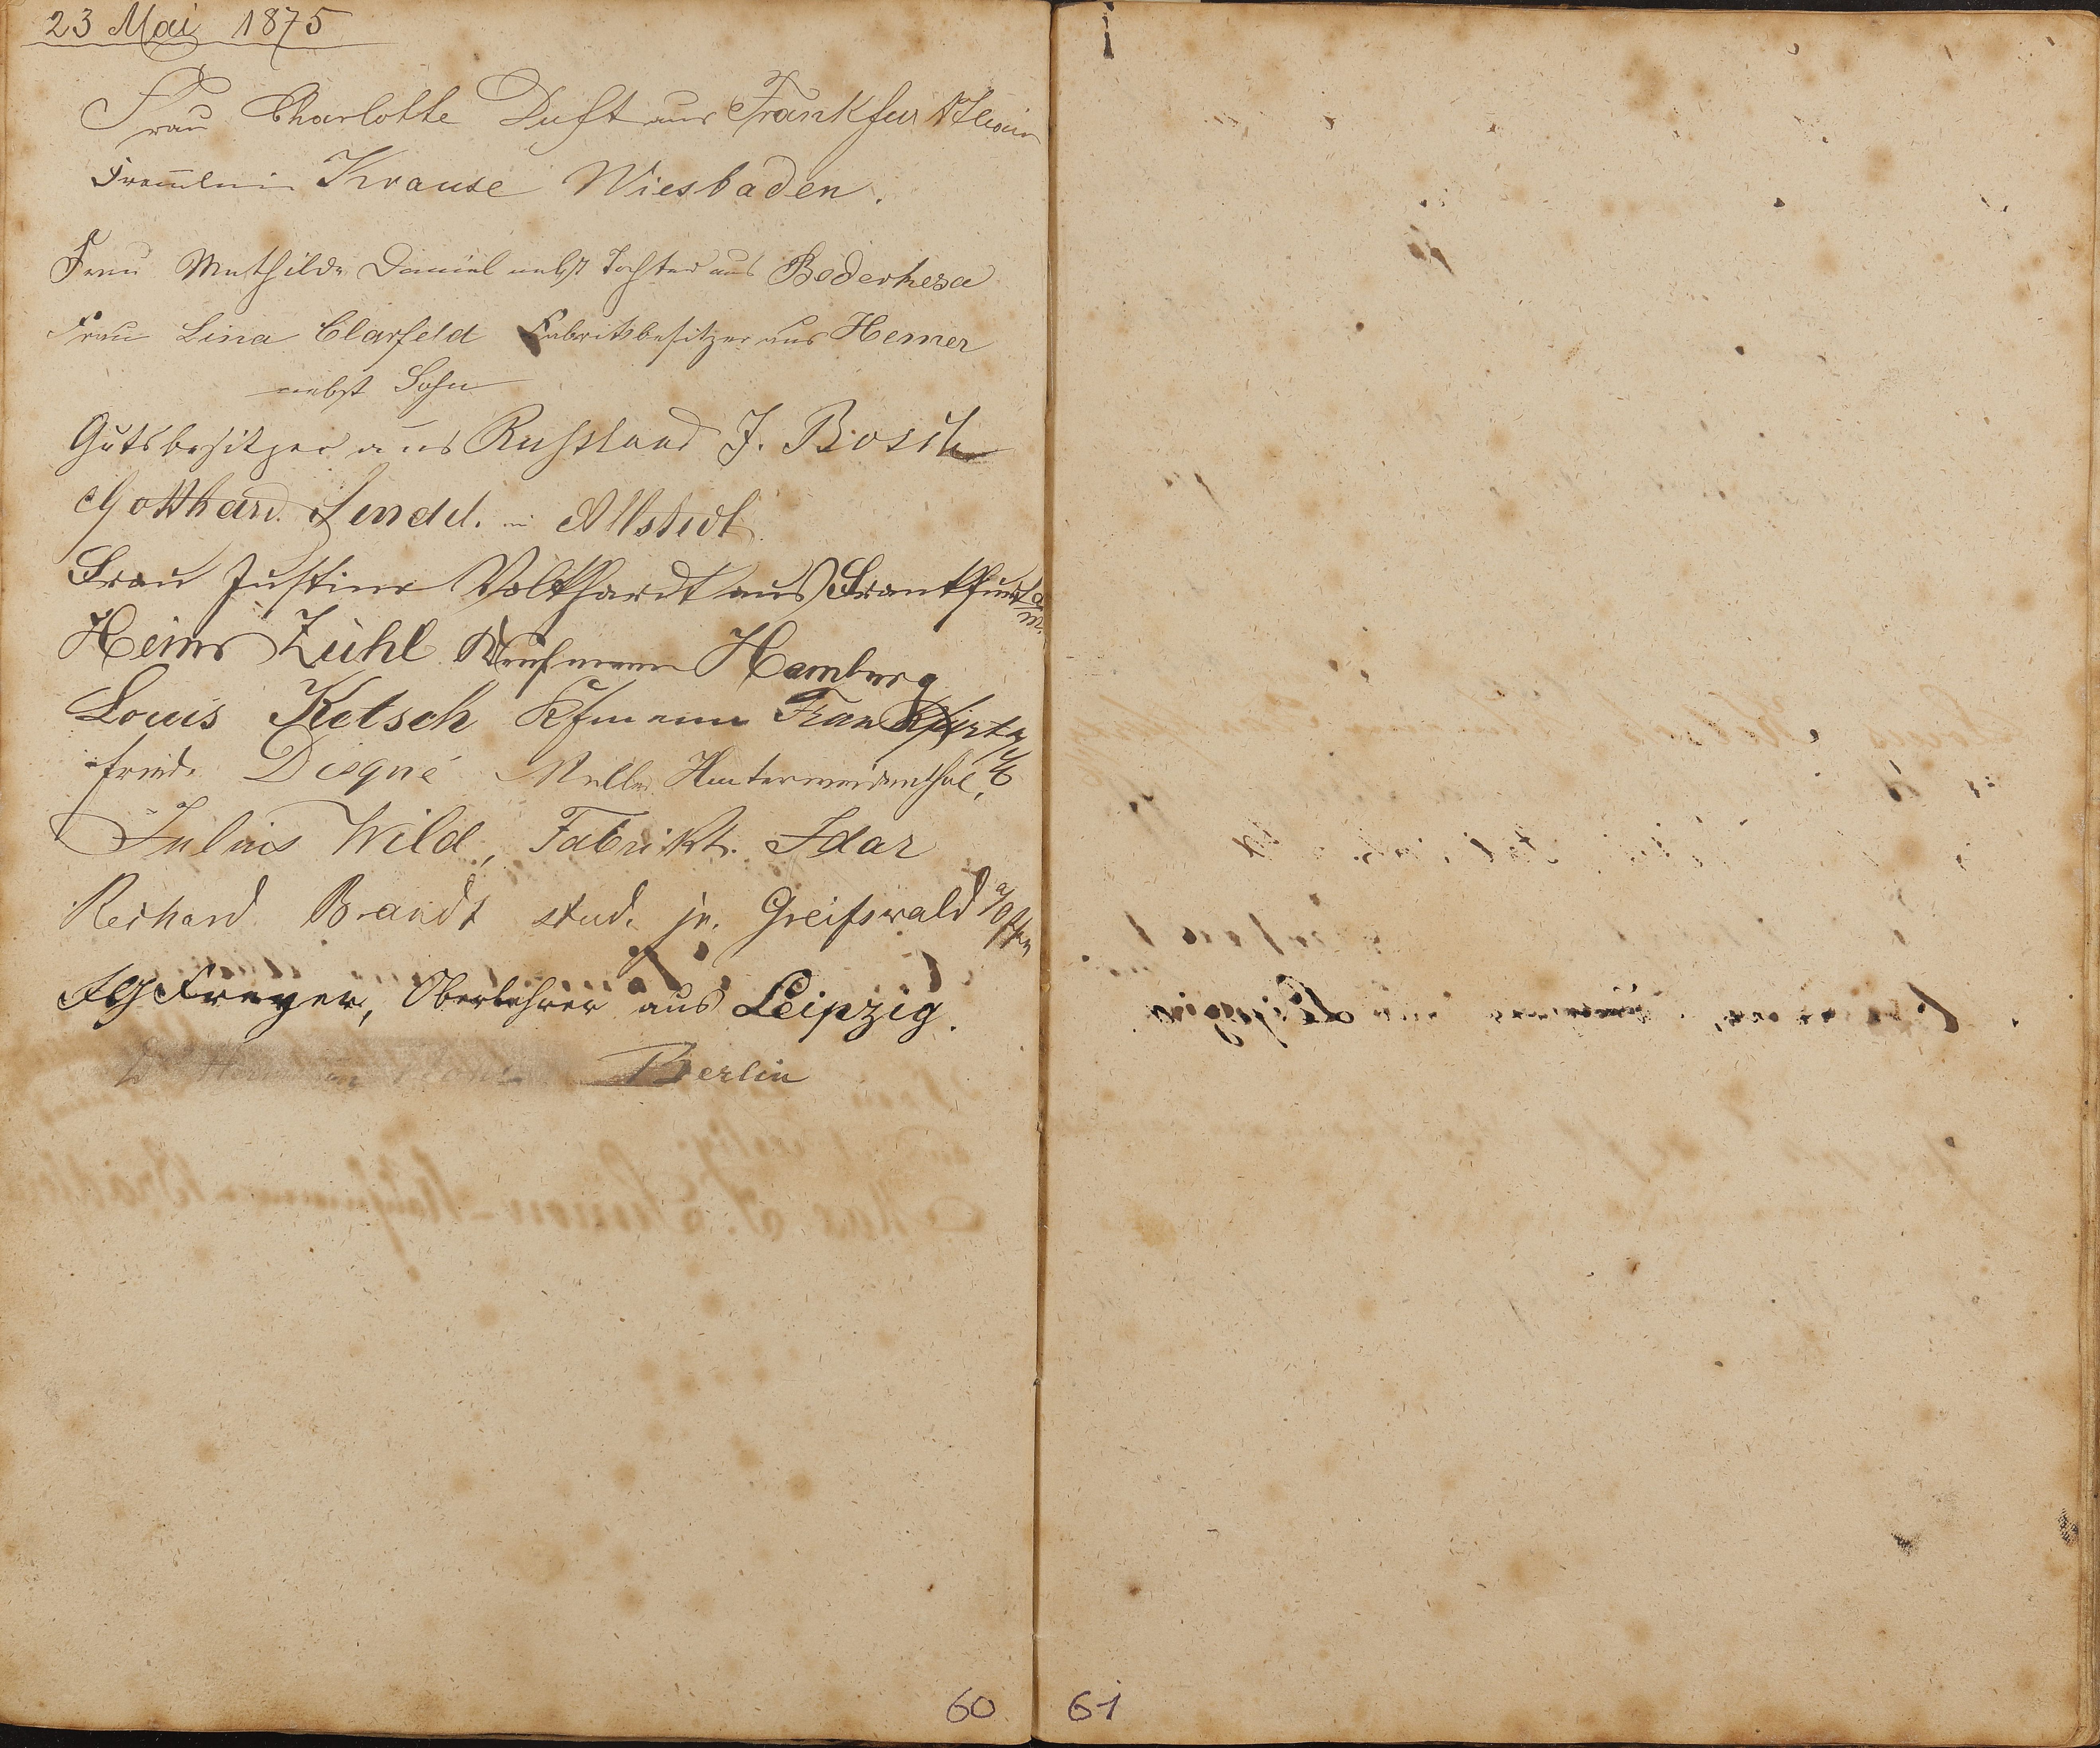 23 Mai 1875
Frau Charlotte Duft aus Frankfurt
Fräulein Krause Wiesbaden.
Frau Mathilde Daniel nebst Tochter aus Bederkesa
Frau Lina Clarfeld Fabrikbesitzer aus Hemer
nebst Sohn
Gutsbesitzer aus Russland J. Bosch
Gotthard Allstedt
Frau Justine Volkhardt aus Frankfurt a/m.
Zühl Kaufmann Hamburg
Louis Ketsch Kfmann Frankfurt a/M
Friedr. Disqué Müller Hinterweidenthal,
Julius Wild, Fabrikt. Idar
Richard Brandt stud. jr. Greifswald
FG Freyer, Oberlehrer aus Leipzig.
Berlin
60
61